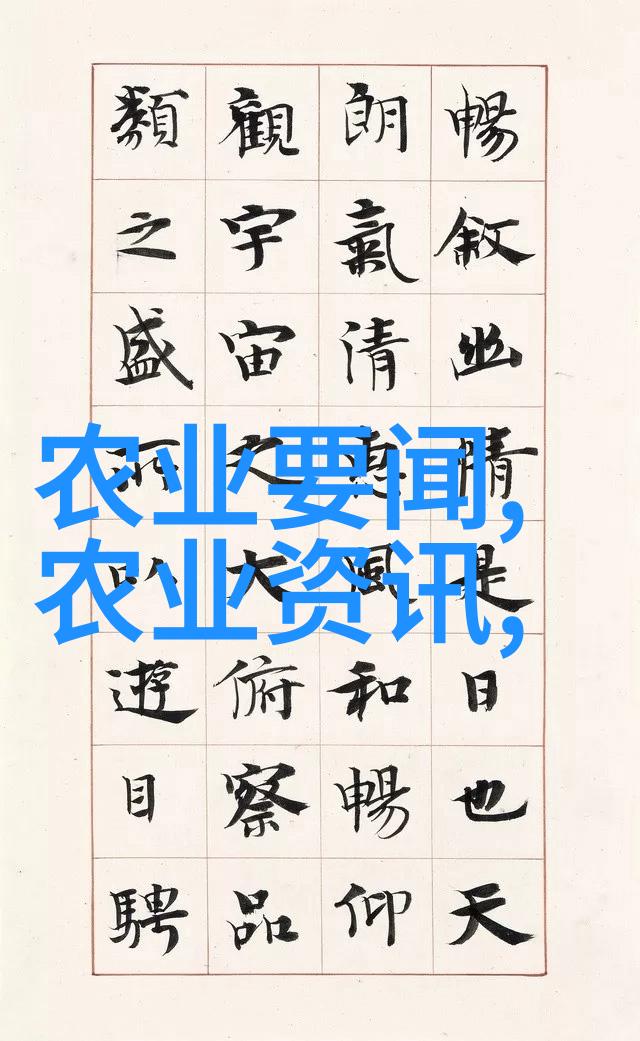 暢敘幽情是日也天
朗氣清惠風和暢仰
觀宇宙之大俯察品
類之盛所以遊目騁
农业要闻,
农业资讯,